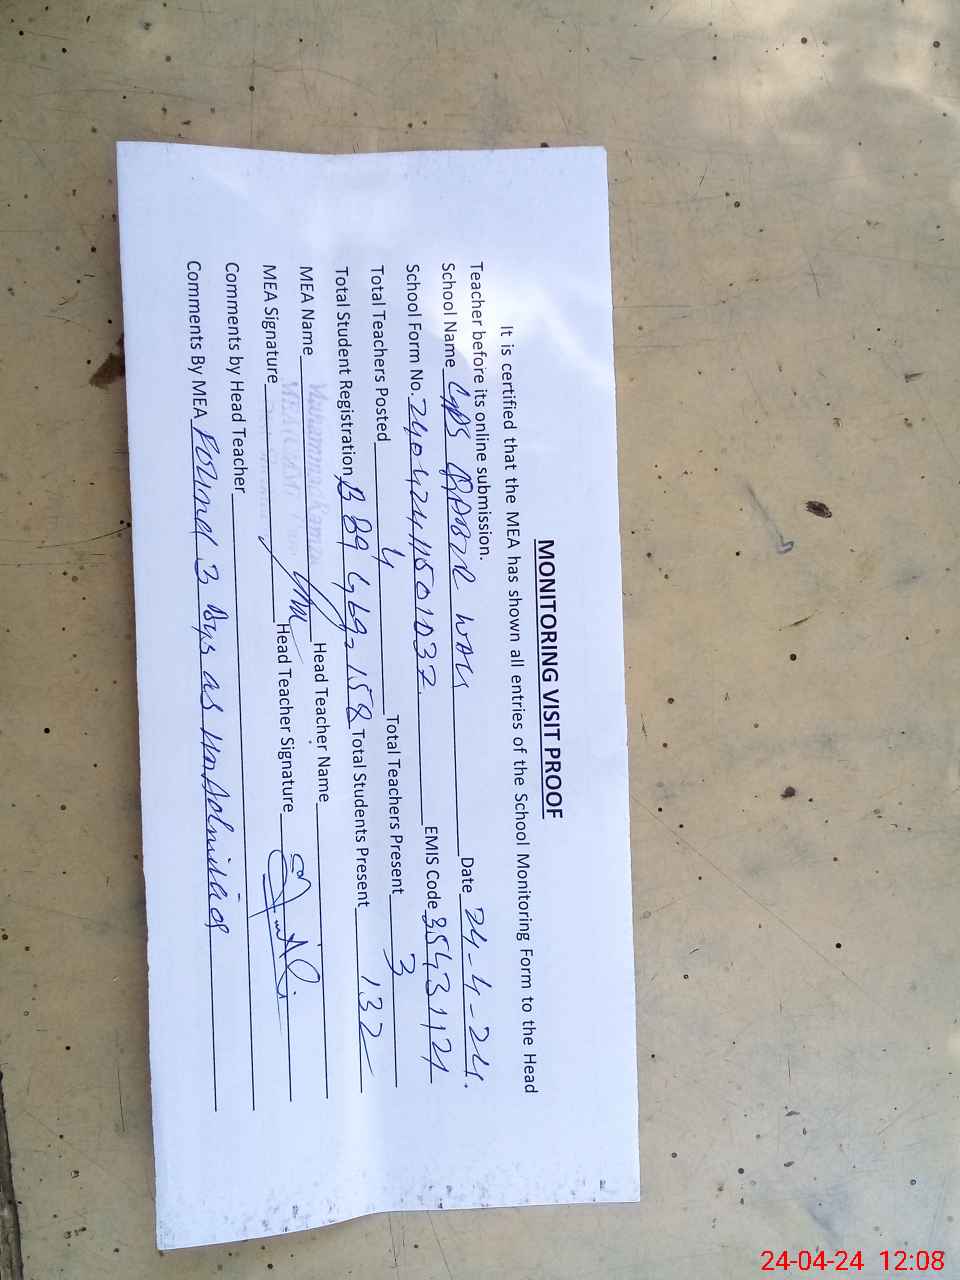 MONITORING VISIT PROOF
It is certified that the MEA has shown all entries of the School Monitoring Form to the Head
Teacher before its online submission.
School Name GPS QADIR WALI Date 24-4-24.
School Form No. 24042411501037 EMIS Code 35431121
Total Teachers Posted 4 Total Teachers Present 3
Total Student Registration B 89 G 69 = 158 Total Students Present 132
MEA Name Muhammad Head Teacher Name
MEA Signature Head Teacher Signature
Comments by Head Teacher
Comments By MEA Found 3 Bys as UnAdmission
24-04-24 12:08